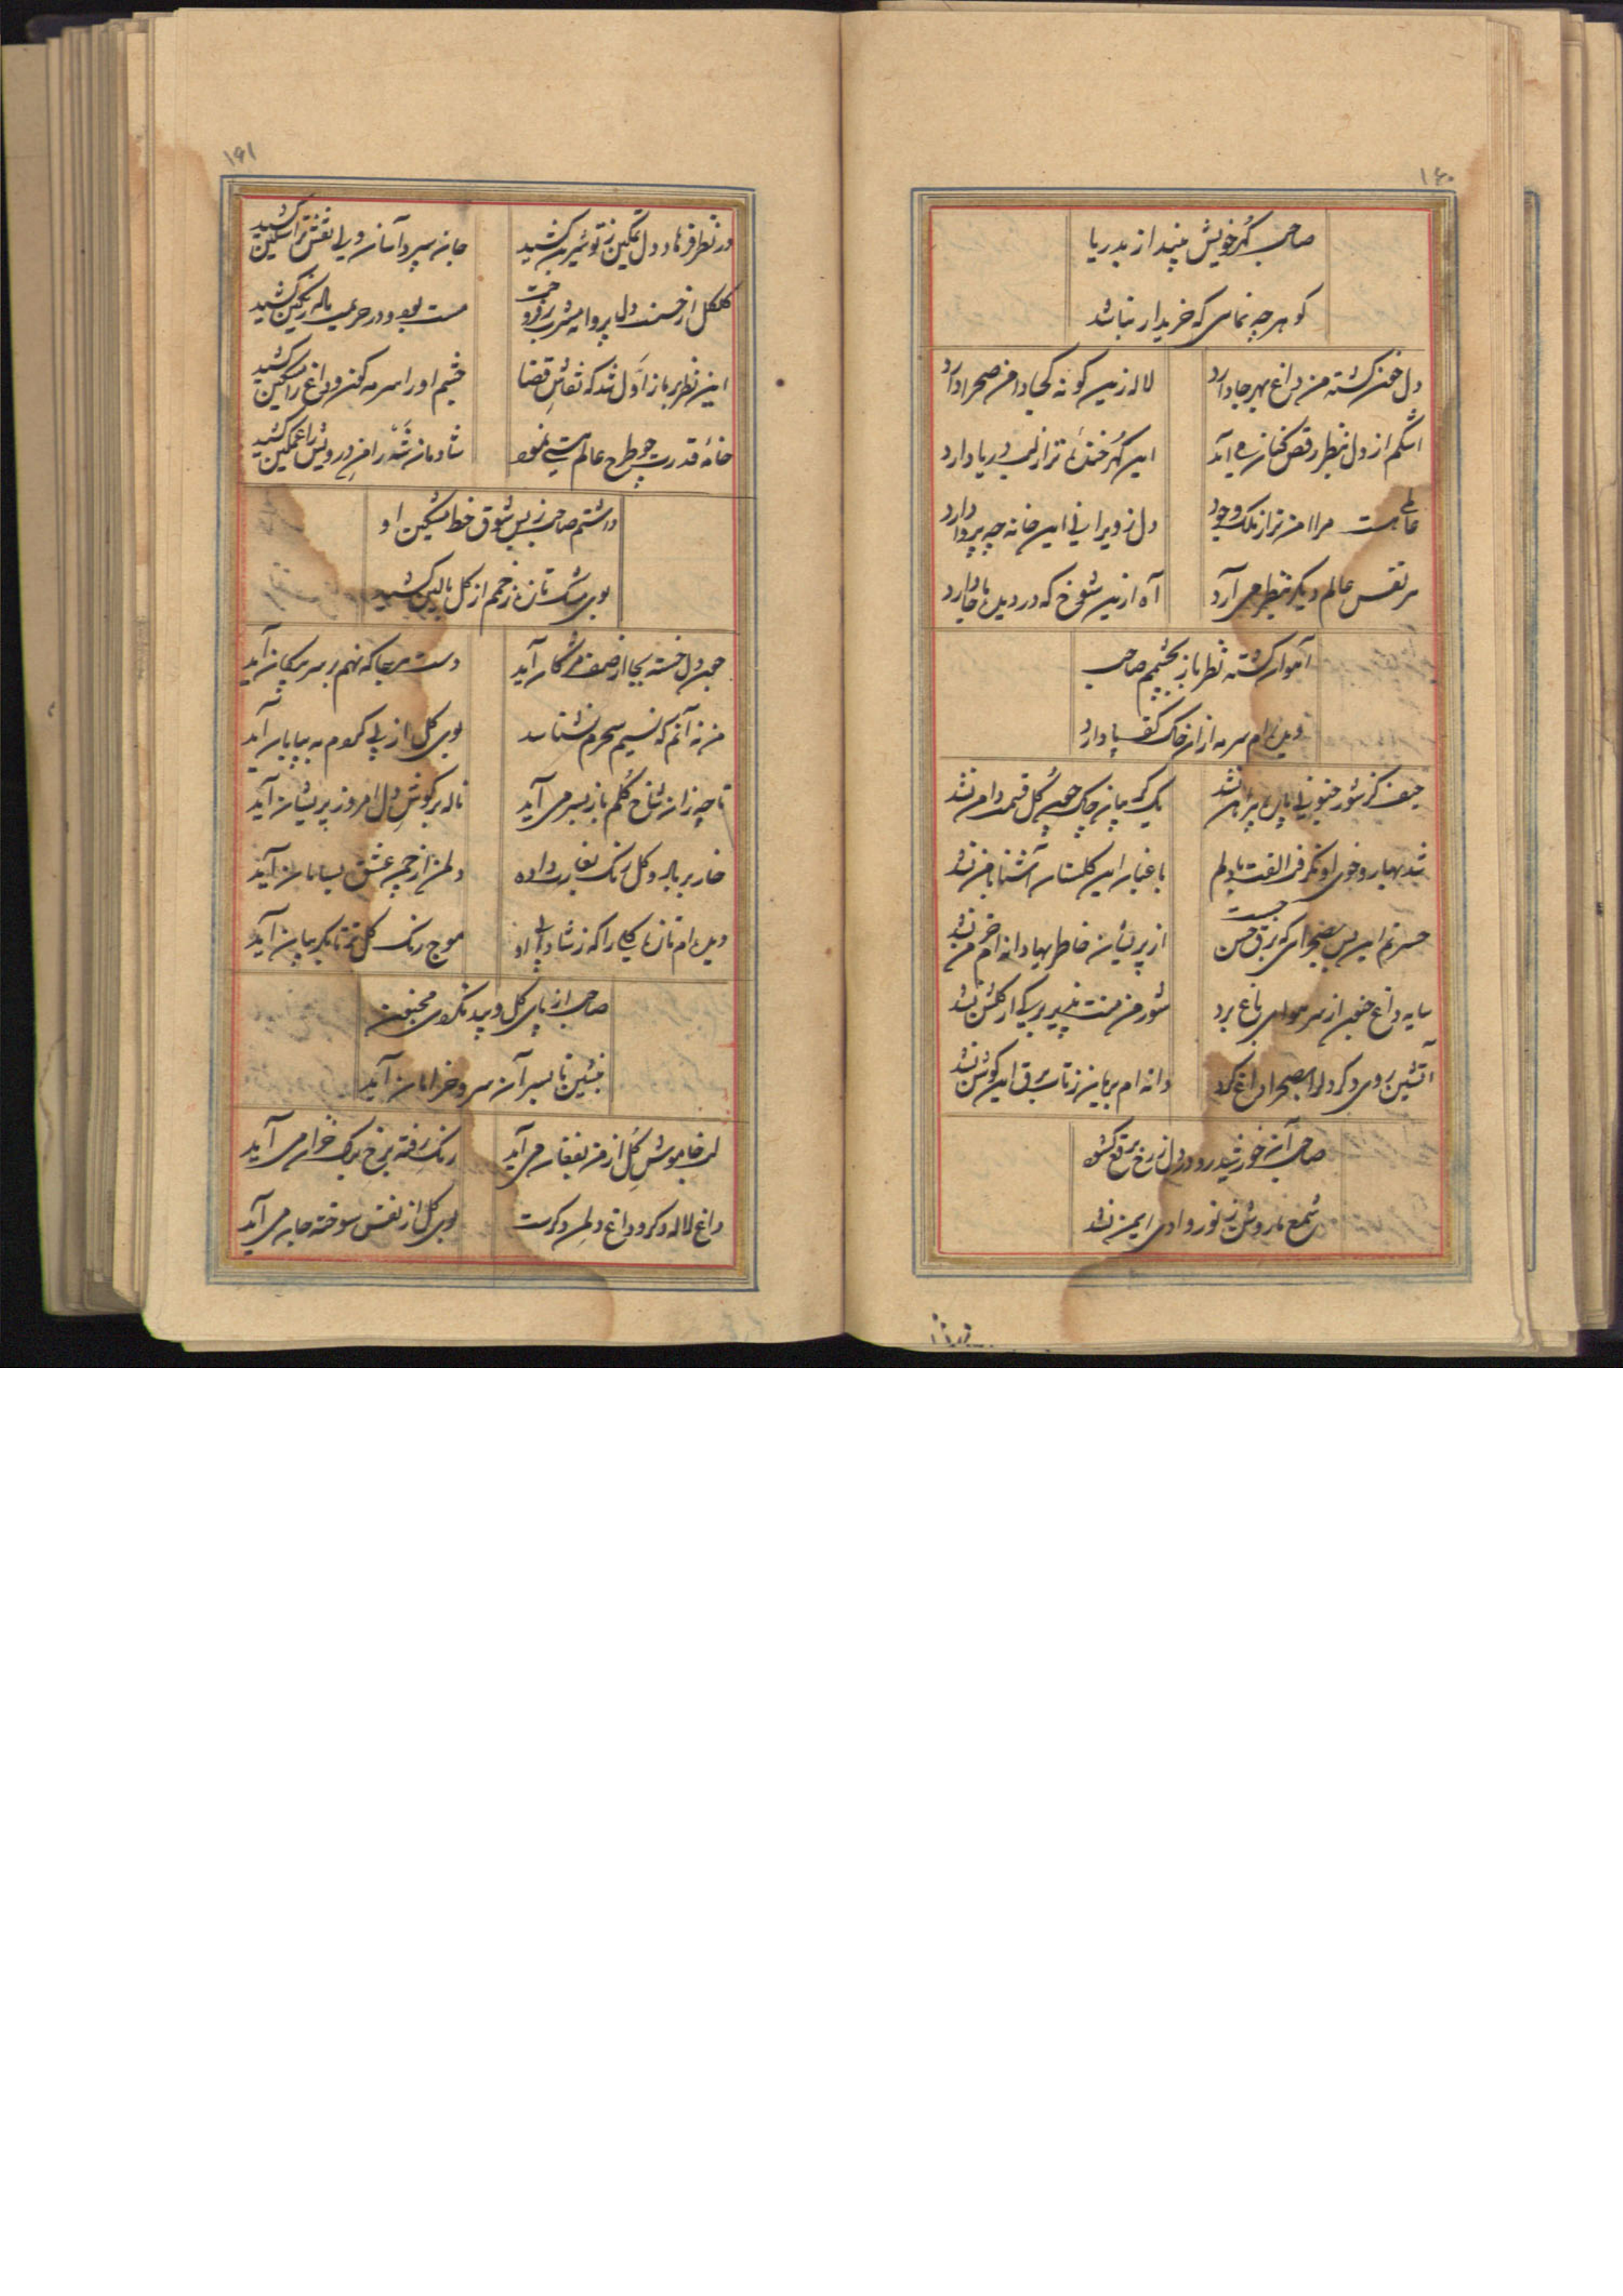 ۱۶۰
صاحب گهر خویش مینداز بدریا
گوهر چه نمای که خریدار نباشد
دل خون گشته من داغ بهر جا دارد
لاله زین گونه کجا دامن صحرا دارد
اشکم از دل بنظر رقص کنان می آید
این گهر خنده تر از لب دریا دارد
عالمی هست مرا من تر از ملک وجود
دل ز ویرانی این خانه چه پروا دارد
هر نفس عالم دیگر بنظر می آرد
آه ازین شوخ که در دیده ما جا دارد
آهو از گشته نظر باز بچشمم صاحب
دیده ام سرمه از آن خاک کف پا دارد
حیف کز شور جنونی پاره پیراهن نشد
یک گریبان چاک چون گل قسمت دامن نشد
شد بهار و خوی او نگرفت الفت با دلم
باغبان این گلستان آشنا با من نشد
حسرتم این بس بصحرای که برق حسن جست
از پریشان خاطریها دانه ام خرمن نشد
سایه داغ جنون از سر هوای باغ برد
شور من منت پذیر برگی از گلشن نشد
آتشین روی دگر دلرا بصحرا داغ کرد
دانه ام بریان ز تاب برق این گلشن نشد
صاحب آیینه خورشید رو در دل ز رخ برقع گشود
شمع ما روشن ز نور وادی ایمن نشد
۱۶۱
در نظر فرهاد دل تمکین ز تو شیرین کشید
جان سپرد آسان ولی نقش ترا سنگین کشید
گلگل از حسنت دل پروا میشرب فروخت
مست بود و در حریمت باله رنگین کشید
این نظر باز اول شد که نقاش قضا
چشم او را سرمه گون و داغ را مسکین کشید
خانهٔ قدرت چو طرح عالم هستی نمود
شادمان شد زان و درویش را غمگین کشید
داشتم صاحب ز بس شوق خط مشکین او
بوی مشک تازه زخمم از گل بالین کشید
چون دل خسته بجا از صف مژگان آید
دست بر جا که نهم بر سر پیکان آید
من نه آنم که نسیم سحرم نشناسد
بوی گل از پی گم به بیابان آید
تا چه زان شاخ گلم باز بسر می آید
ناله بر گوش دل امروز پریشان آید
خار بر باله و گل رنگ بغارت داده
دلم از چمن عشق بسامان آید
دیده ام تازه گلی را که ز شادابی او
موج رنگ گل تر تا بگریبان آید
صاحب از پای گل و بید نکوی مجنون
بنشین تا بسر آن سرو خرامان آید
لب خاموش گل از من بفغان می آید
رنگ رفته برخ برگ خزان می آید
داغ لاله دگر و داغ دلم دگرست
بوی گل از نفس سوخته جان می آید